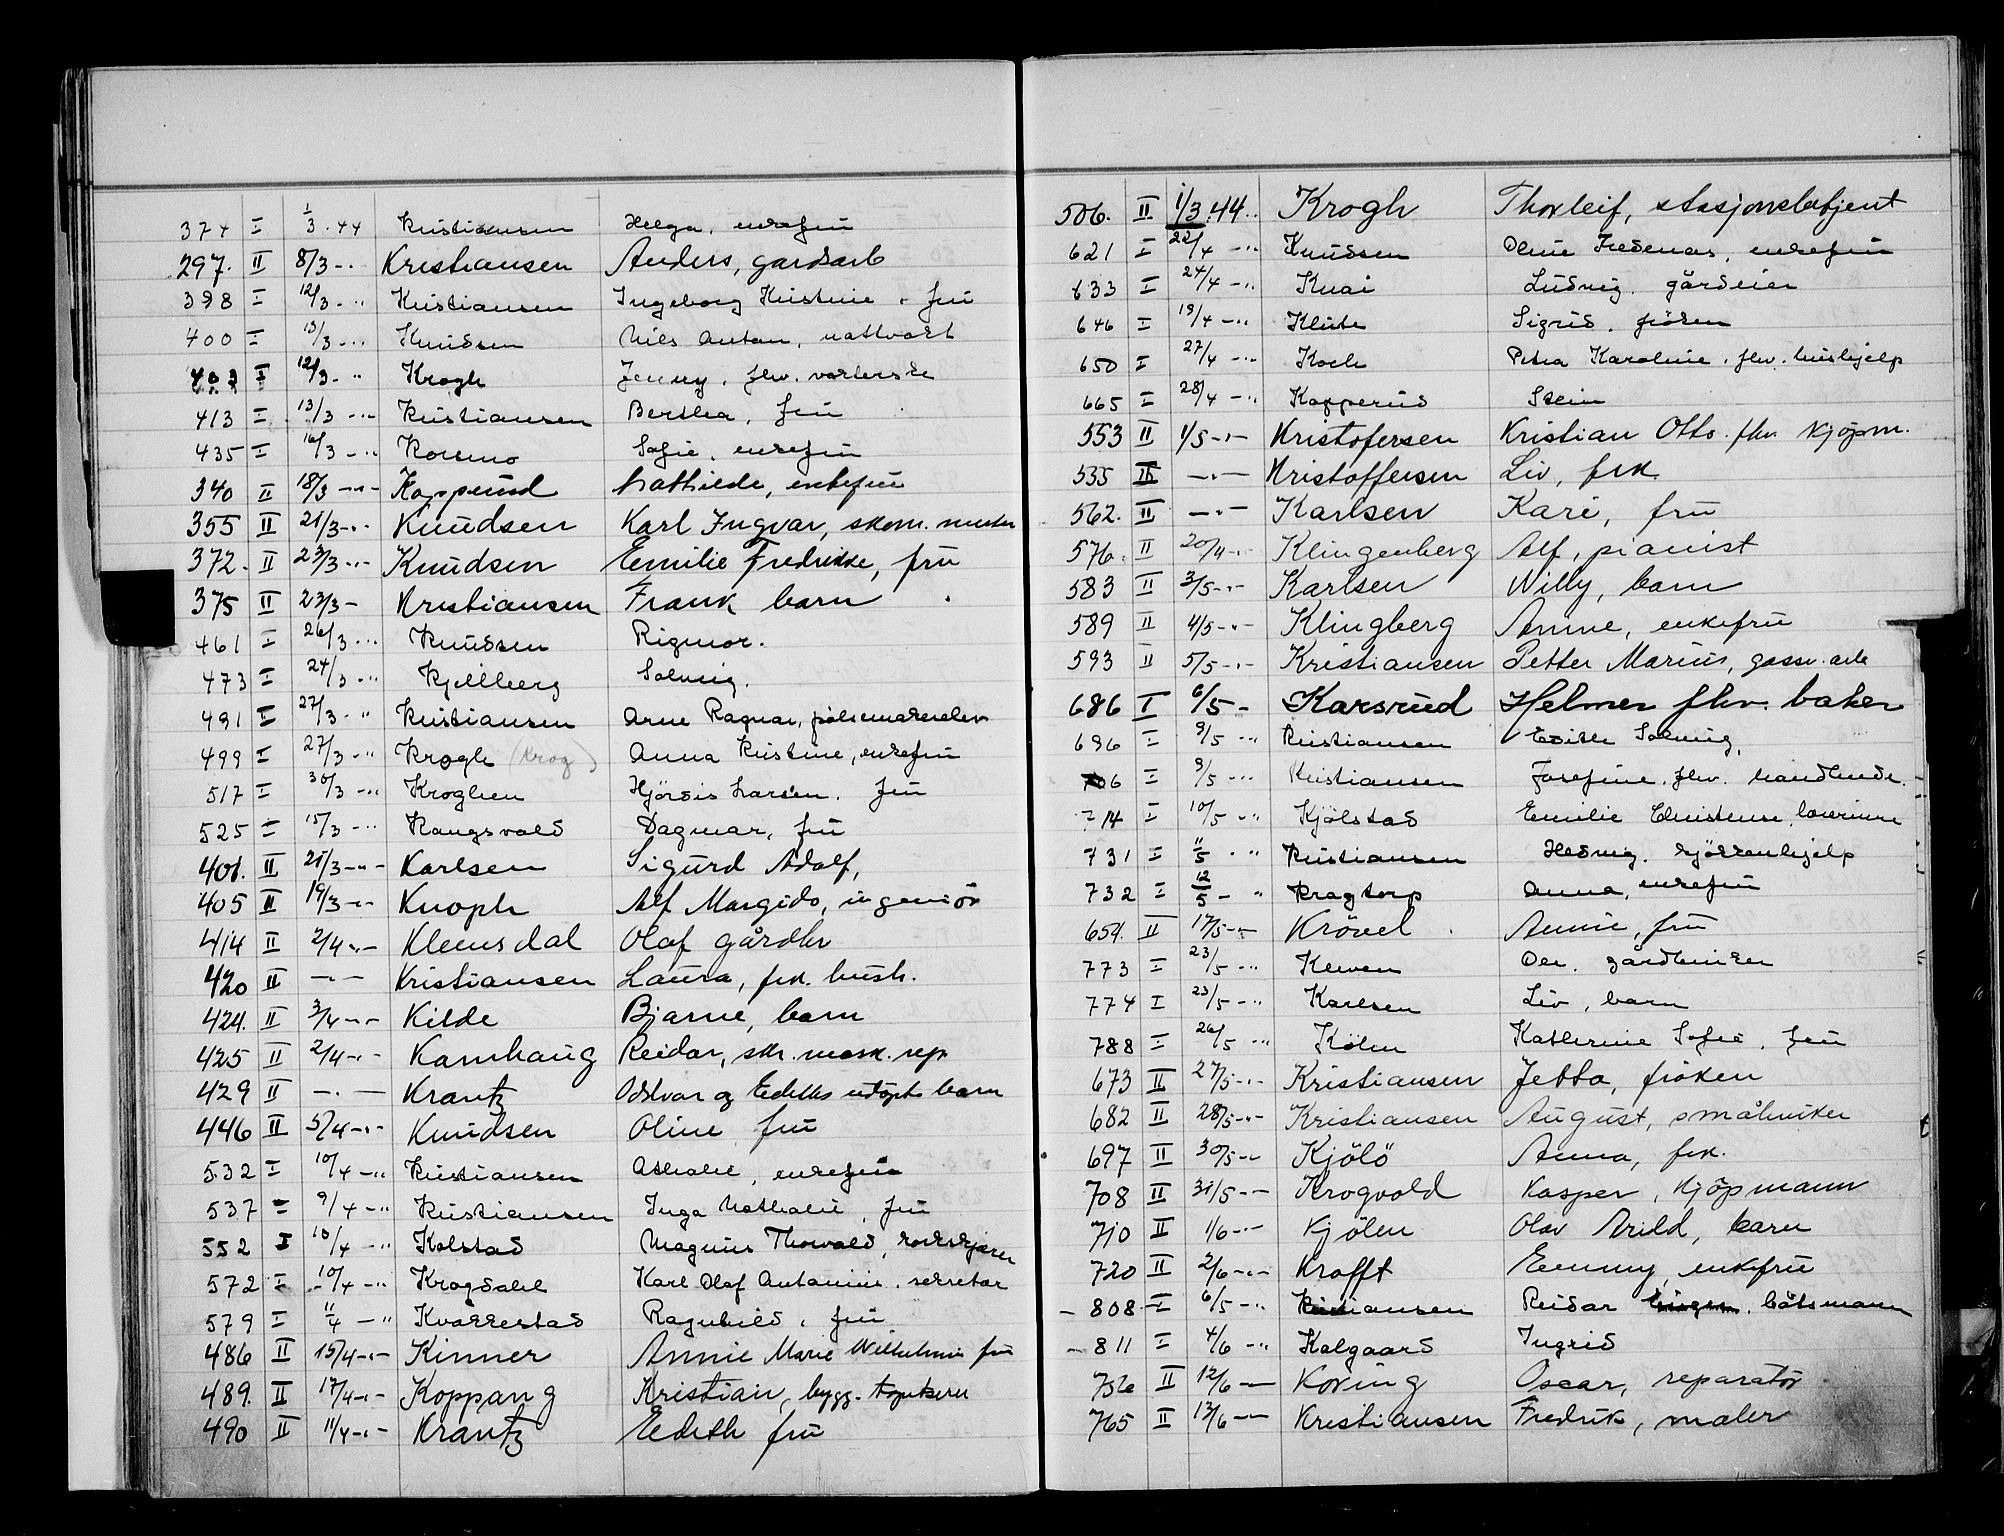 374 I 1/3.44 Kristiansen Helga, enkefru
297. II 8/3-.. Kristiansen Anders, gardsarb
398 I 12/3-.. Kristiansen Ingeborg Kristine, fru
400 I 13/3-.. Knudsen Nils Anton, nattvakt
403 I 12/3-.. Krogh Jenny, fhv. varterske
413 I 13/3-.. Kristiansen Berthea, fru
435 I 16/3-.. Korsmo Sofie, enkefru
340 II 18/3-.- Kopperud Mathilde, enkefru
355 II 21/3-.- Knudsen Karl Ingvar, skom. mester
372. II 23/3-.- Knudsen Emilie Fredrikke, fru
375 II 23/3- Kristiansen Frank barn
461 I 26/3-.. Knudsen Rigmor.
473 I 24/3-.. Kjellberg Solveig.
491 I 27/3-.. Kristiansen Arne Ragnar, pölsemakerelev
499 I 27/3-.. Krogh (Krog) Anna Kristine, enkefru
517 I 30/3-.. Kroghen Hjördis Larsen, fru
525 I 15/3-.. Kongsvold Dagmar, fru
401. II 21/3-.- Karlsen Sigurd Adolf,
405 II 19/3-.- Knoph Alf Margido, ingeniör
414 II 2/4-.- Klemsdal Olaf gårdbr
420 II -.- Kristiansen Laura, frk. hush.
424. II 3/4-.- Kilde Bjarne, barn
425 II 2/4-.- Kamhaug Reidar, skr. mask. rep
429 II -.- Krantz Oddvar og Edeths udöpte barn
446 II 5/4-.- Knudsen Oline fru
532 I 10/4-.. Kristiansen Athalie, enkefru
537 I 9/4-.. Kristiansen Inga Mathalie, fru
552 I 10/4-.. Kolstad Magnus Thorvald,
572 I 10/4-.. Krogdahl Karl Olaf Antonius, sekretær
579 I 11/4-.. Kvakkestad Ragnhild, fru
486 II 15/4-.- Kinner Annie Marie Wilhelmine fru
489. II 17/4-.- Koppang Kristian, bygg.
490 II 11/4-.- Krantz Edeth fru
506. II 1/3.44.. Krogh Thorleif, stasjonsbetjent
621 I 22/4-.. Knudsen Oline enkefru
633 I 24/4-.. Knai Ludvig, gårdeier
646 I 19/4-.. Klute Sigrid, fröken
650 I 27/4-.. Koch Petra Karoline, fhv. hushjelp
665 I 28/4-.. Kopperud Stein
553 II 1/5-.- Kristofersen Kristian Otto fhv. kjöpm.
535 II -.- Kristoffersen Liv, frk.
562. II -.- Karlsen Kari, fru
576. II 20/4-.. Klingenberg Alf, pianist
583 II 3/5-.- Karlsen Willy, barn
589 II 4/5-.- Klingberg Anne, enkefru
593 II 5/5-.- Kristiansen Petter Marius, gassv. arb
686 I 6/5- Karsrud Helmer fhv. baker
696 I 9/5-.. Kristiansen Edith Solveig,
706 I 9/5-.. Kristiansen Josefine, fhv. handlende.
714 I 10/5-.. Kjölstad Emilie Christense, lærerinne
731 I 11/5-.. Kristiansen Hedvig, kjökkenhjelp
732 I 12/5-.. Kragtorp Anna, enkefru
654. II 17/5-.- Krövel Annie, fru
773 I 23/5-.. Kleven Ole, gårdbruker
774 I 23/5-.. Karlsen Liv, barn
788 I 26/5-.. Kölen Katherine Sofie, fru
673 II 27/5-.- Kristiansen Jetta, fröken
682 II 28/5-.- Kristiansen August, småbruker
697 II 30/5-.- Kjölö Anna, frk.
708 II 31/5-.- Krogvold Kasper, kjöpmann
710 II 1/6-.- Kjölen Olav Arild, barn
720 II 2/6-.- Krafft Emmy, enkefru
- 808 I 6/5-.. Kristiansen Reidar båtsmann
- 811 I 4/6-.. Kolgaard Ingrid
756 II 12/6-- Koring Oscar, reparatör
765 II 13/6-- Kristiansen Fredrik, maler